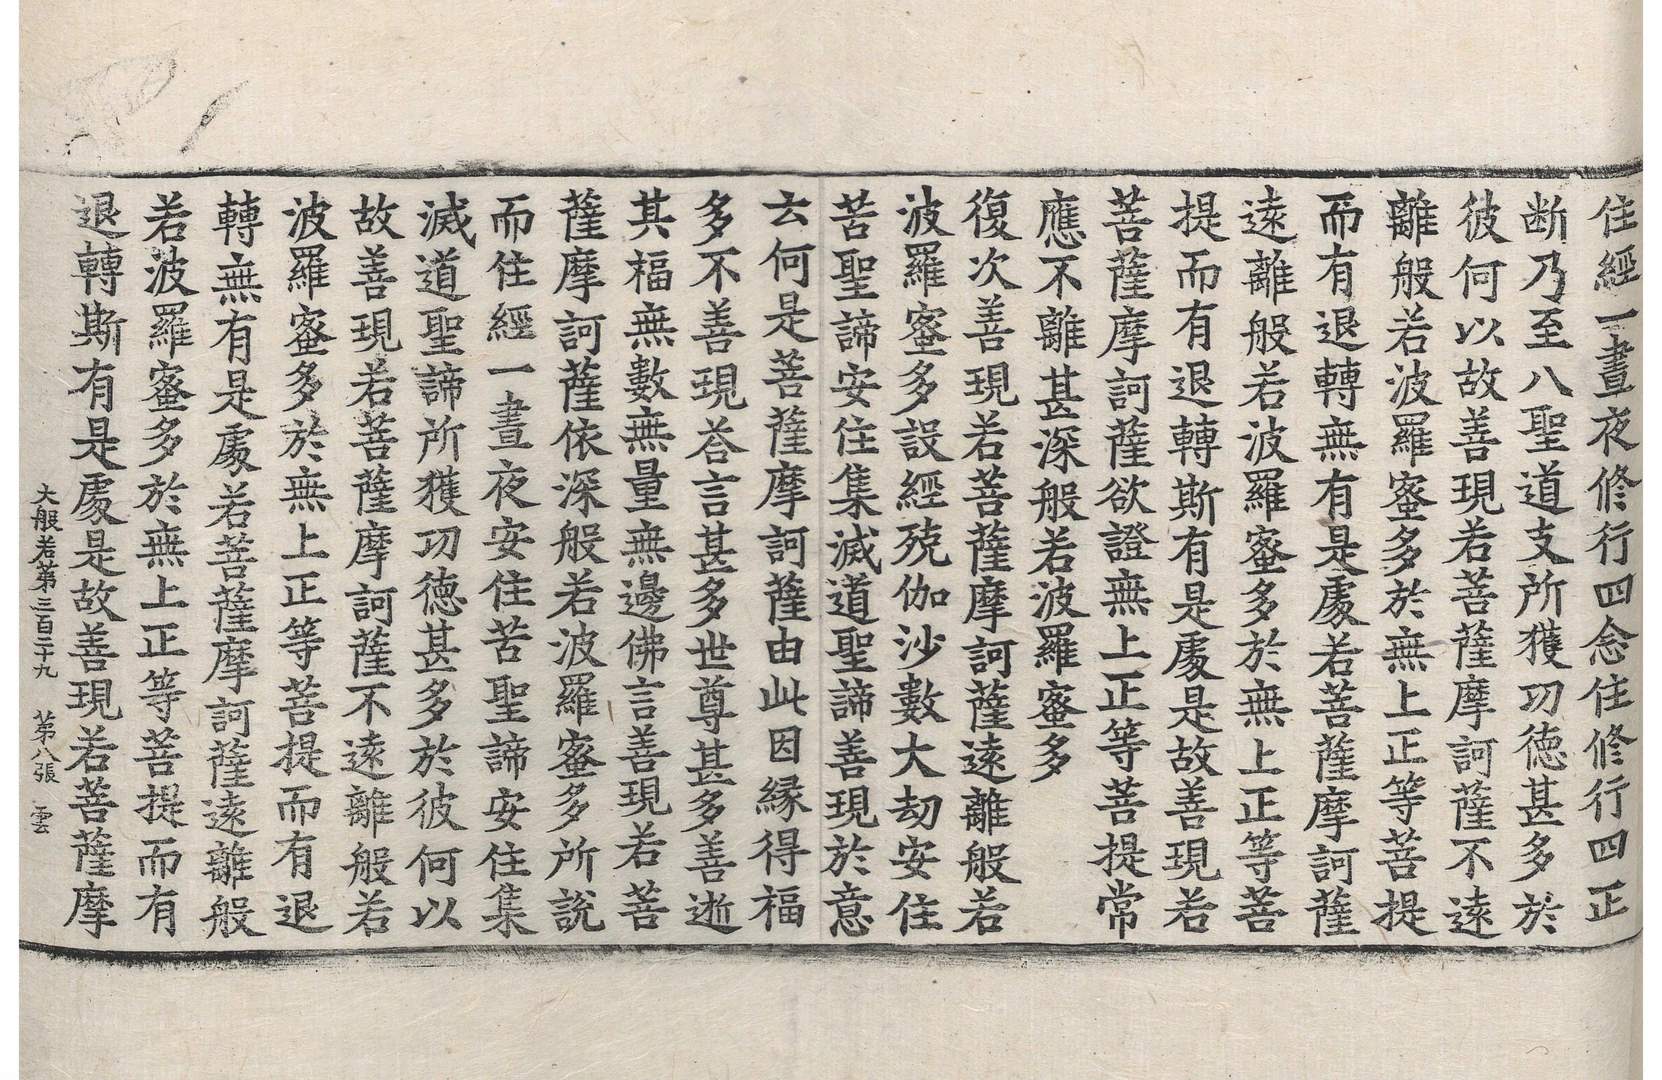 住經一晝夜修行四念住修行四正
断乃至八聖道支所獲功德甚多於
彼何以故善現若菩薩摩訶薩不遠
離般若波羅蜜多於無上正等菩提
而有退轉無有是處若菩薩摩訶薩
遠離般若波羅蜜多於無上正等菩
提而有退轉斯有是處是故善現若
菩薩摩訶薩欲證無上正等菩提常
應不離甚深般若波羅蜜多
復次善現若菩薩摩訶薩遠離般若
波羅蜜多設經殑伽沙數大劫安住
苦聖諦安住集滅道聖諦善現於意
云何是菩薩摩訶薩由此因緣得福
多不善現荅言甚多世尊甚多善逝
其福無數無量無邊佛言善現若菩
薩摩訶薩依深般若波羅蜜多所說
而住經一晝夜安住苦聖諦安住集
滅道聖諦所獲功德甚多於彼何以
故善現若菩薩摩訶薩不遠離般若
波羅蜜多於無上正等菩提而有退
轉無有是處若菩薩摩訶薩遠離般
若波羅蜜多於無上正等菩提而有
退轉斯有是處是故善現若菩薩摩
大般若第三百二十九 第八張 雲